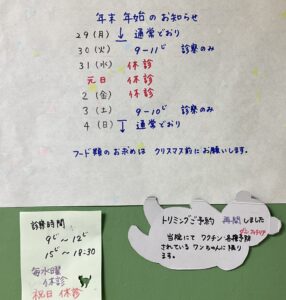 年末年始のお知らせ
29(月) ↓ 通常どおり
30(火) 9-11㌔ 診察のみ
31(水) 休診
元日 休診
2(金) 休診
3(土) 9-10㌔ 診察のみ
4(日) 通常どおり
フード類のお求めは クリスマス前にお願いします。
診察時間
9㌔~12㌔
15㌔~18:30
毎水曜
休診
祝日 休診
トリミングご予約 再開しました
当院にて ワクチン・各種予防
されている ワンちゃんに限り
ます。